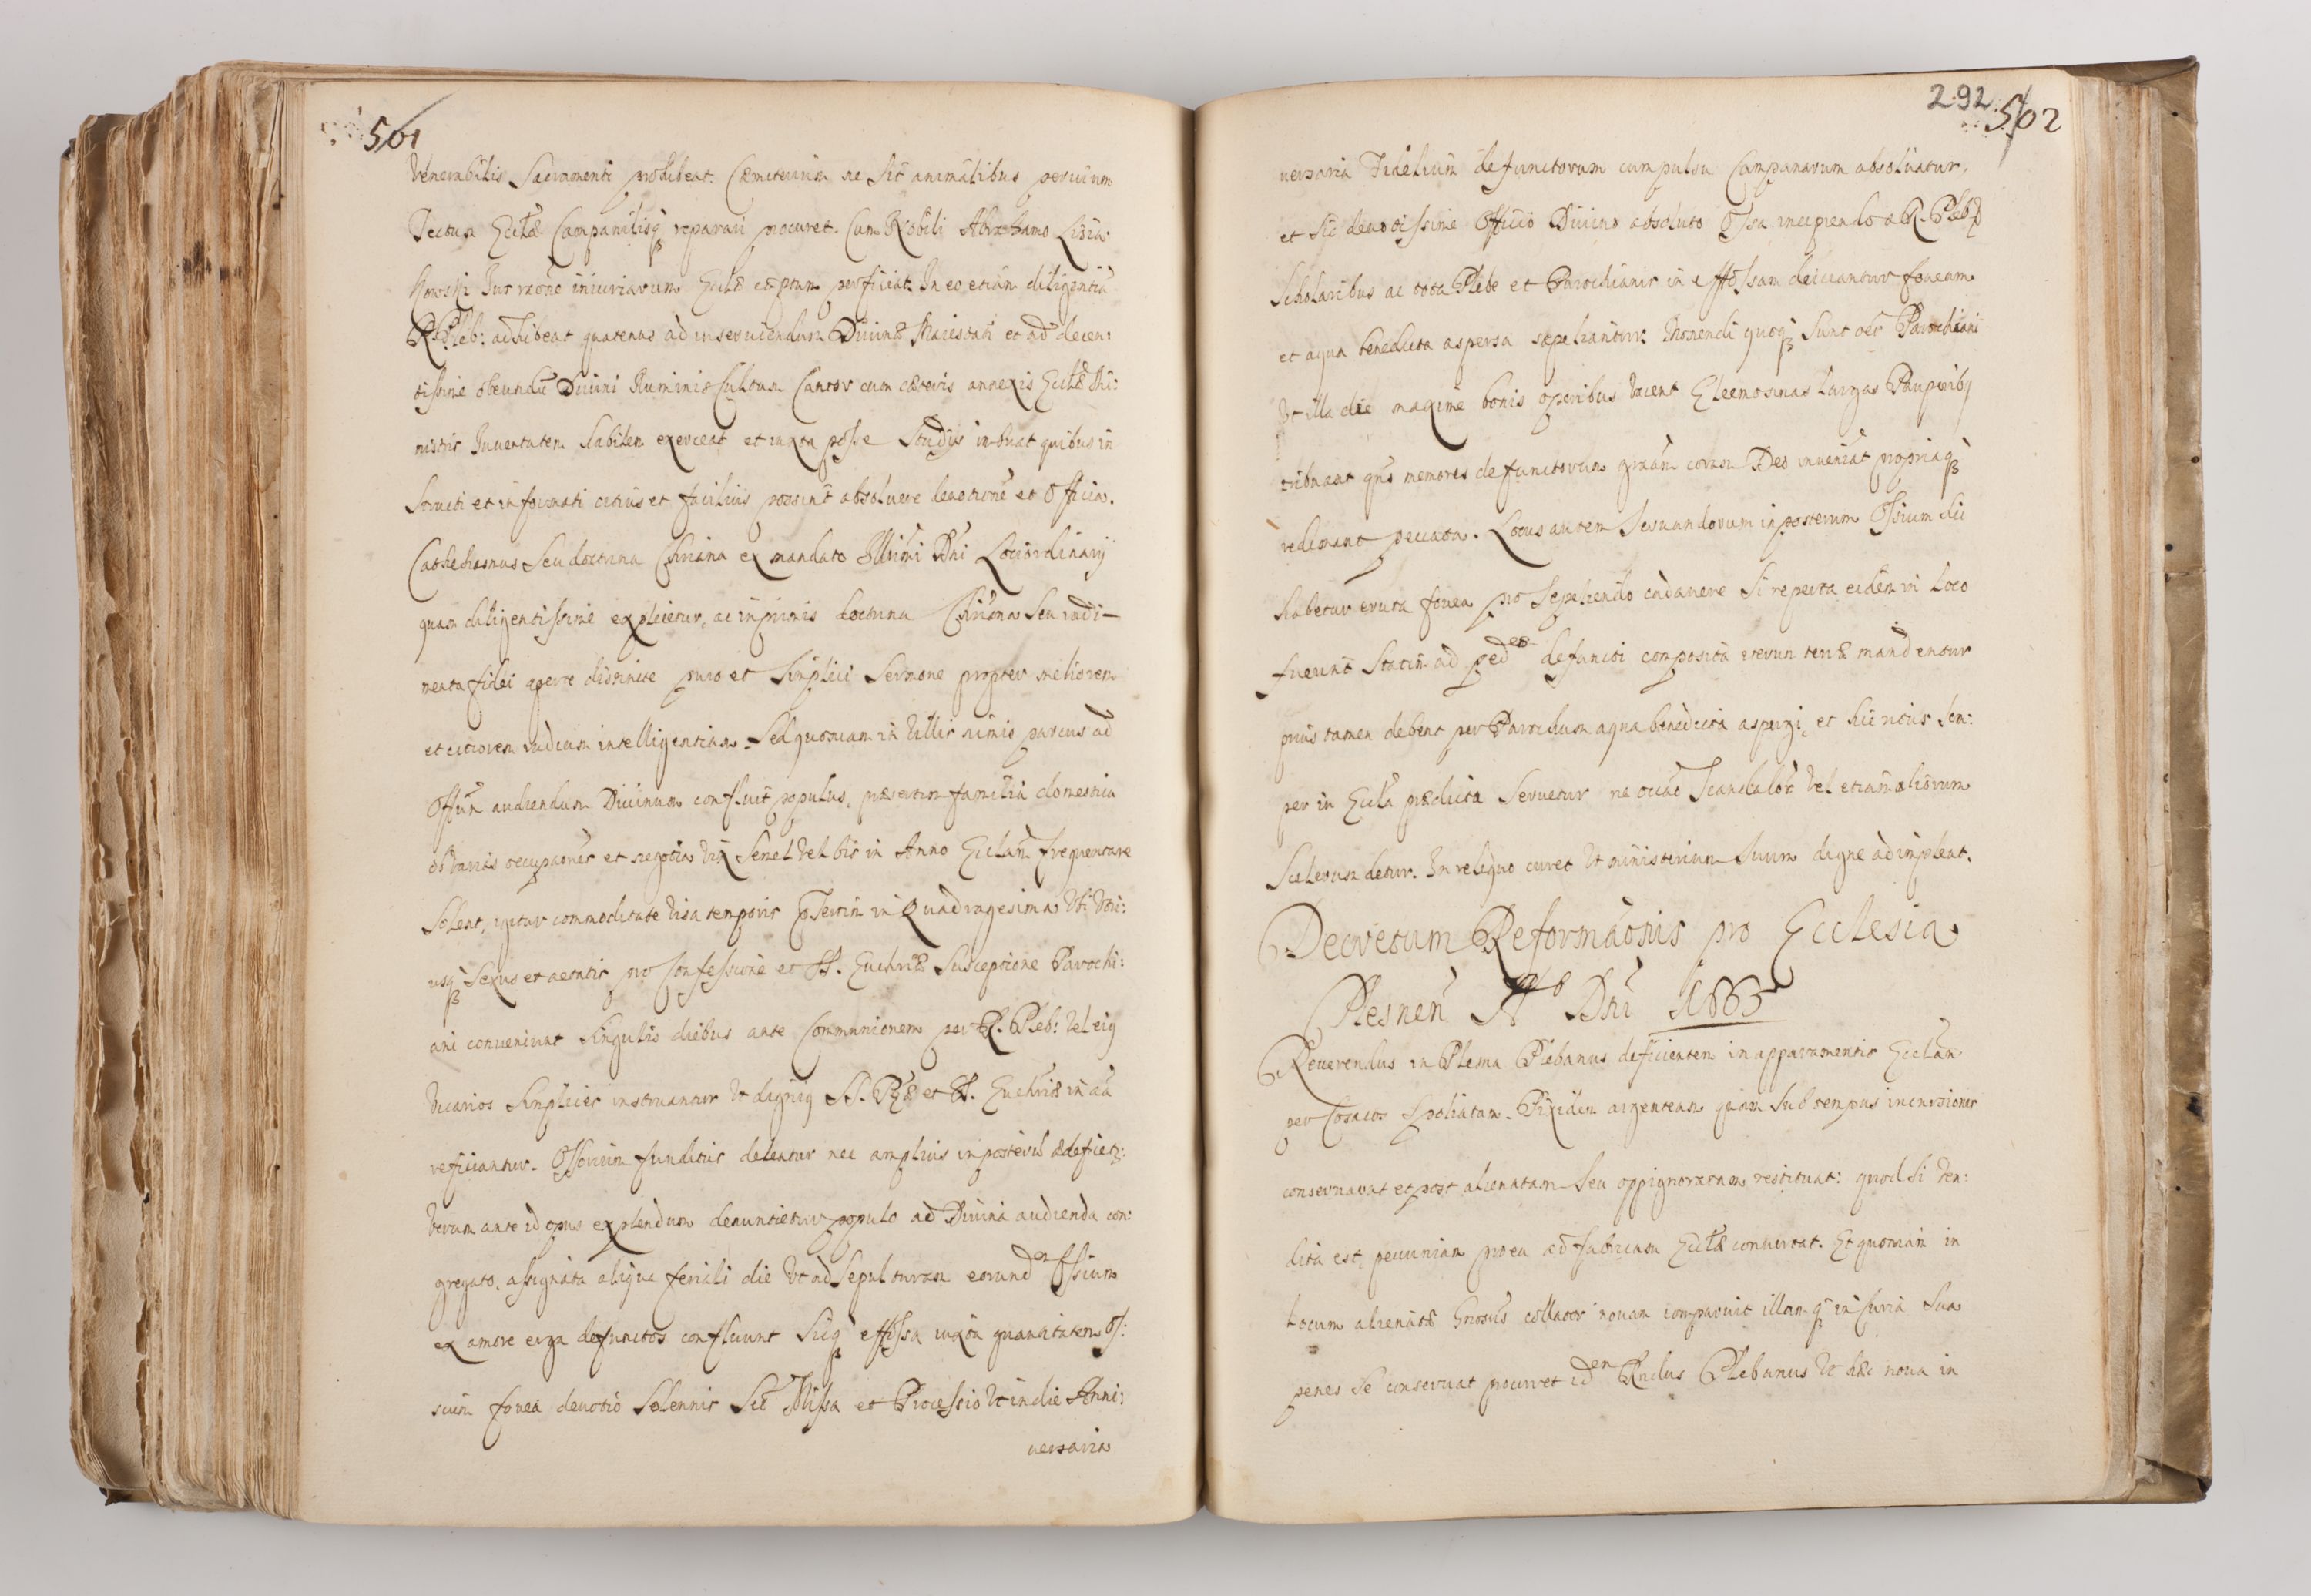 501
Venerabilis Sacramenti prohibeat. Cæmeterium ne sit animalibus pervium
Tectum Eccłæ Campanilisq̃ reparari procuret. Cum Nobili Abrahamo
Jus rãone iniuriarum Eccłæ cæptum perficiat. In eo etiam diligentiã
R. Pleb: adhibeat quatenus ad inserviendum Divinæ Maiestati et ad decen:
tissime obeundũ Divini Numinis Cultum Cantor cum cæteris annexis Eccłæ Mi:
nistris Iuventutem habilem exerceat et iuxta posse Studijs imbuat quibus in
structi et informati citius et facilius possint absolvere devotionẽ et Officia.
Cathechismus seu doctrina Chriana ex mandato Illmi Dni Lociordinarij
quam diligentissime explicetur, ac inprimis doctrina Chriana seu rudi-
menta fidei aperte distincte puro et simplici Sermone propter meliorem
et citiorem rudium intelligentiam. Sed quoniam in Villis nimis parcus ad
Offũm audiendum Divinum confluit populus, præsertim familia domestica
ob varias occupãones et negotia vix semel vel bis in Anno Eccłam frequentare
solent, igitur commoditate visa temporis p̃sertim in Quadragesima Ubi Utri:
usq̃ sexus et aetatis pro Confessione et SS. Euchriæ Susceptione Parochi:
ani conveniunt singulis diebus ante Communionem per R. Pleb: vel eiq
vicarios simpliciter instruantur Ut digniq SS. et SS. Euchriæ
reficiantur. Ossorium funditus deleatur nec amplius inposterũ ædeficet:
Verum ante id opus explendum denuntietur populo ad Divina audienda con:
gregato, assignata aliqua feriali die Ut ad Sepulturam eorundem Ossium
ex amore erga defunctos confluunt sicq̃ effossa iuxta quantitatem Os:
sium fovea devotio Solennis Sit Missa et Processio Ut in die Anni:
versaria
292
502
versaria Fidelium defunctorum cum pulsu Campanarum absolvatur,
et sic devotissime Officio Divino absoluto Ossa incipiendo a R. Pleb̃
Scholaribus ac tota Plebe et Parochianis in effossam deiiciantur foveam
et aqua benedicta aspersa sepeliantur. Monendi quoq̃ sunt oẽs Parochiani
Ut illa die maxime bonis operibus vacent Eleemosinas largas Pauperibq
tribuant qũs memores defunctorum grãam coram Deo inveniãt propriaq̃
redimant peccata. Locus autem Servandorum inposterum Ossium sic
habetur eruta fovea pro sepeliendo cadavere si reperta eidem in loco
fuerint statim ad pedes defuncti composita iterum terræ mandentur
prius tamen debent per Parochum aqua benedicta aspergi, et hic ritus Sem:
per in Eccła prædicta Servetur ne occãõ Scandalor̃ Vel etiam aliorum
Scelerum detur. In reliquo curet Ut ministerium Suum digne adimpleat.
Decretum Reformãonis pro Ecclesia
Plesnen̄ Aº Dni 1663
Reverendus in Plesna Plebanus deficientem in apparamentis Ecclam
per Cosacos Spoliatam. Pixidem argenteam quam sub tempus incursionis
conservavat et post alienatam seu oppignoratam restituat: quod si ven:
dita est, pecuniam pro ea ad fabricam Eccłæ convertat. Et quoniam in
locum alienatæ Gnosus collator novam comparavit illamq̃ in Curia Sua
penes se conservat procuret idem Rndus Plebanus Ut hæc nova in